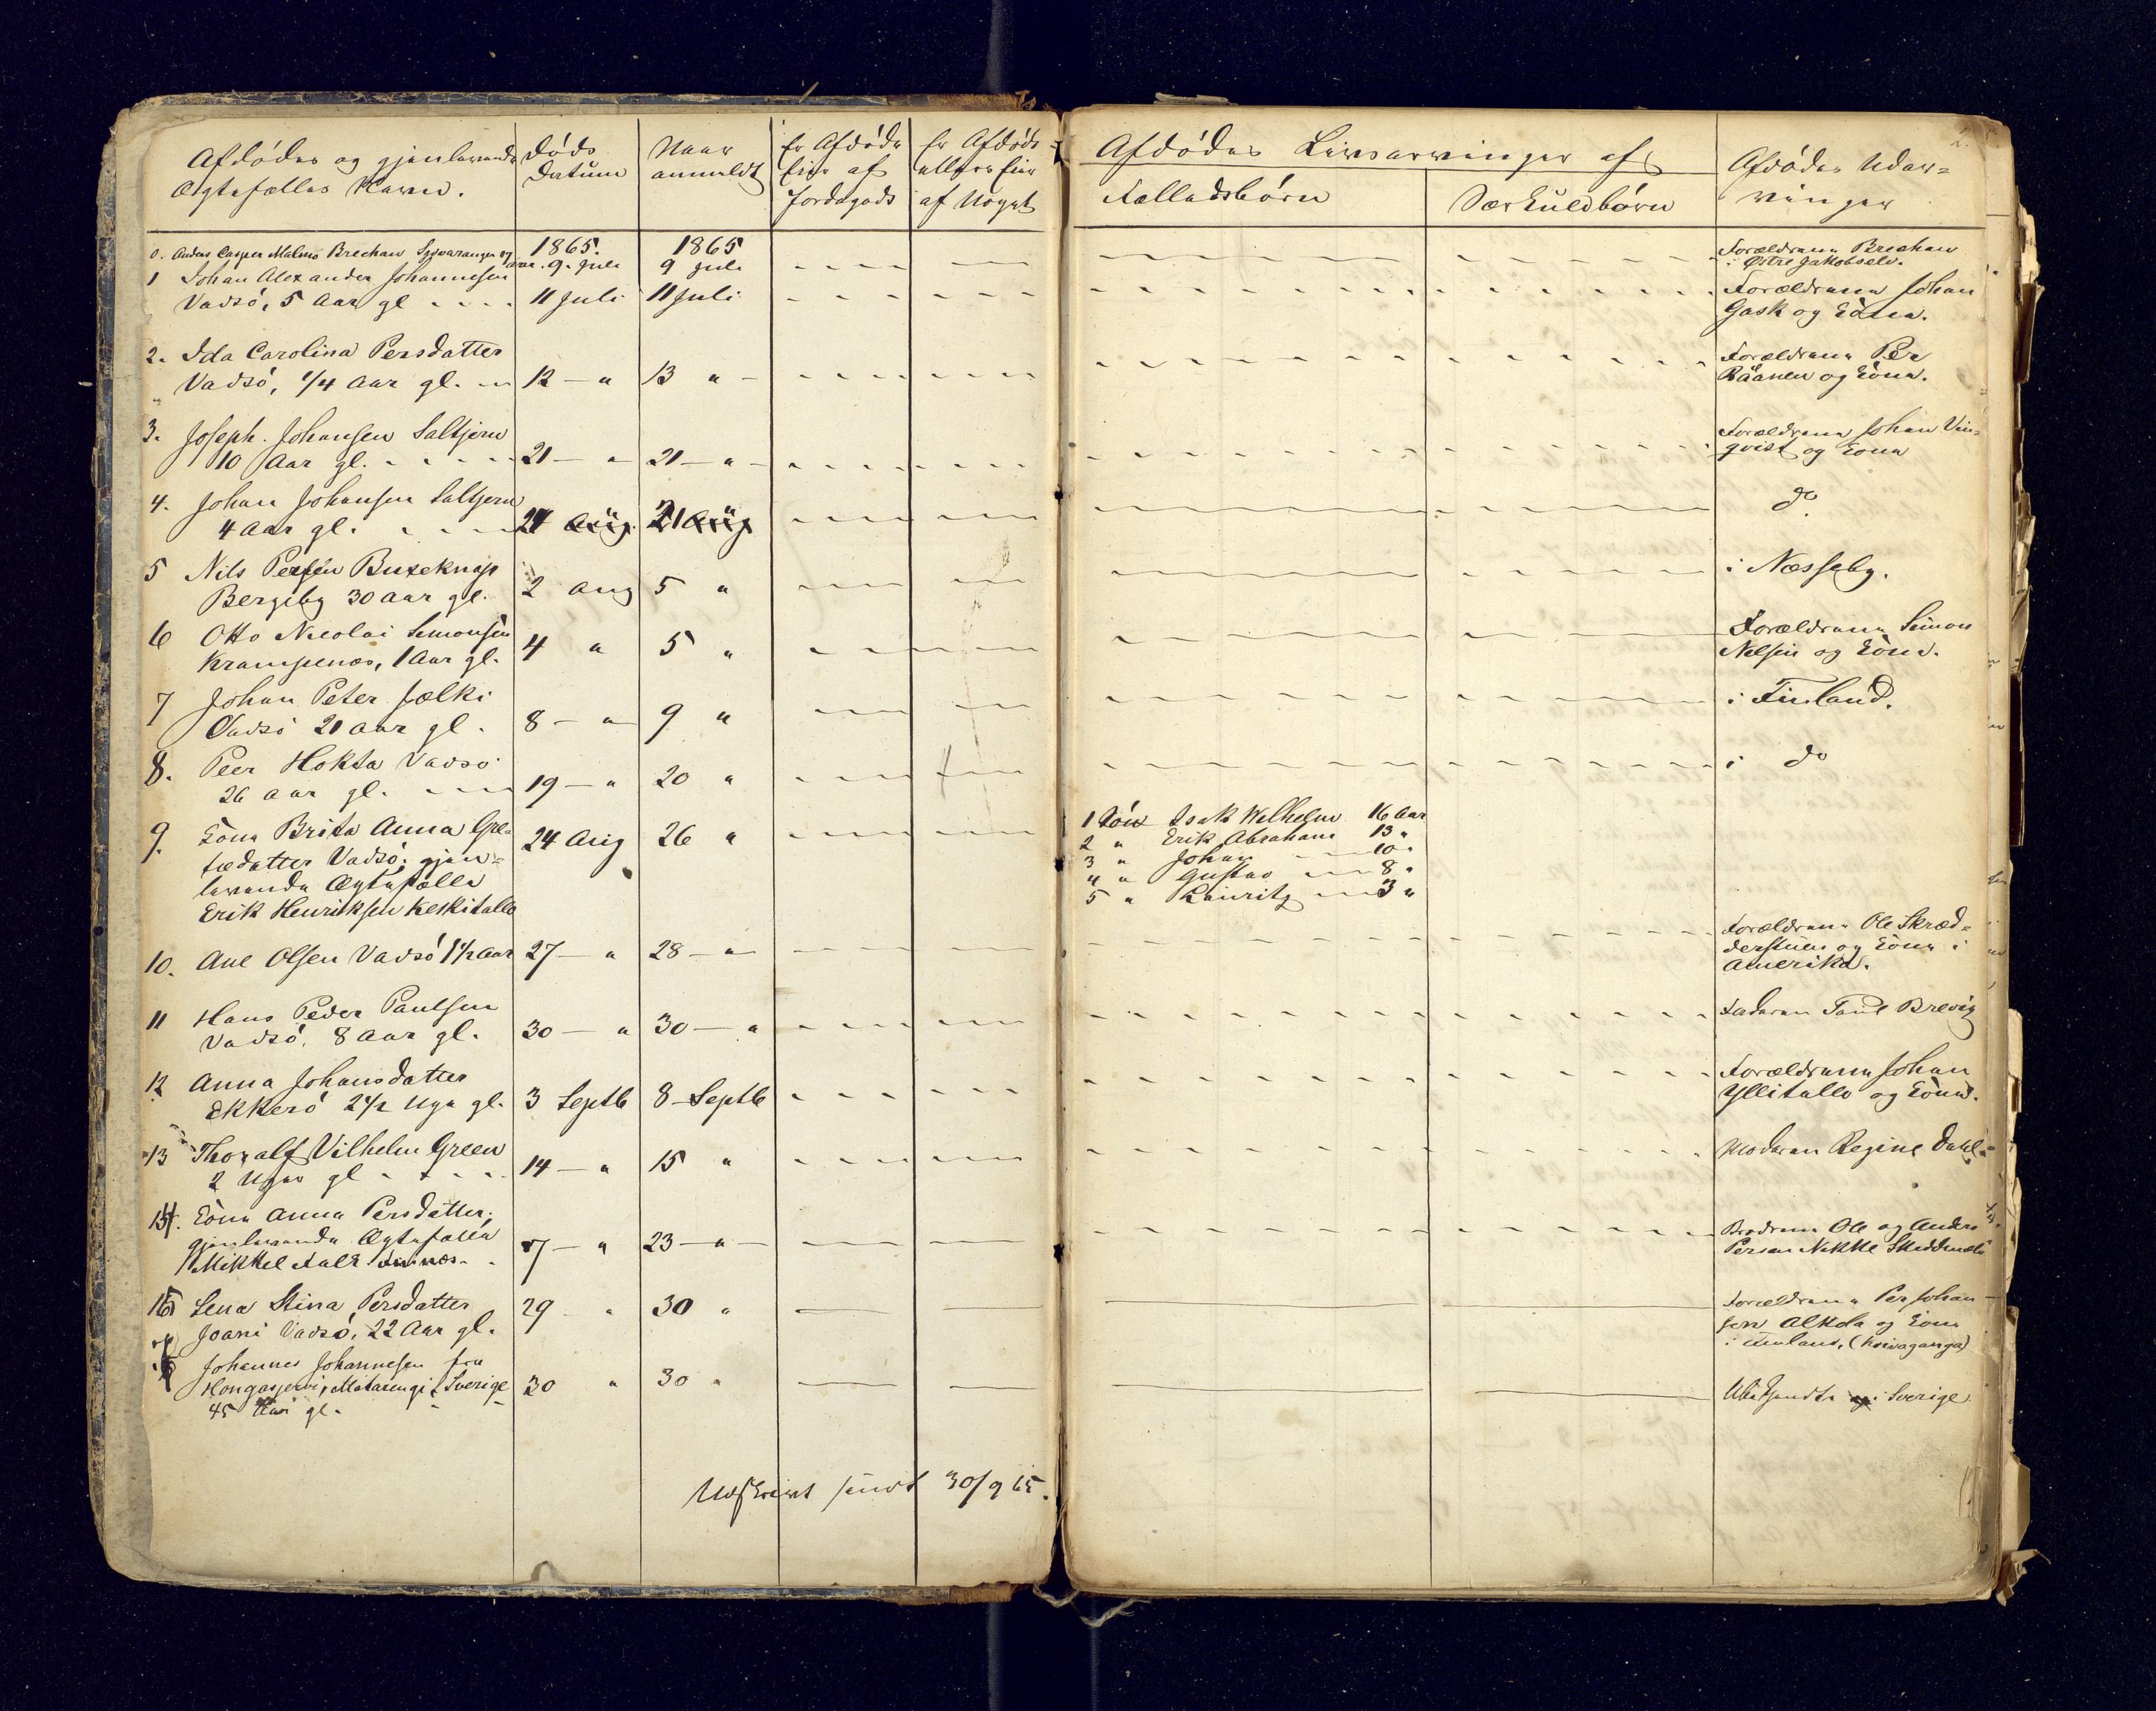 Afdødes og gjenlevende
Ægtefælles Navn.
Døds
Datum
Naar
anmeldt
Er Afdøde
Eier af
Jordegods
Er Afdøde
ellers Eier
af Noget
Afdødes Livsarvinger af
Fælledsbørn
Særkuldbørn
Afdødes Udar=
vinger
2.
0. Anders Casper Malmø Brechan Sydvaranger
1865.
1865
9. Juli
9 Juli
Forældrene Brechan
i Østre Jakobselv.
1 Johan Alexander Johannesen
Vadsø, 5 Aar gl
11 Juli
11 Juli
Forældrene Johan
Gask og Kone.
2. Ida Carolina Persdatter
Vadsø, 1/4 Aar gl.
12 — "
13 " —
Forældrene Per
og Kone.
3. Joseph. Johansen Saltjern
10 Aar gl.
21 — "
21 — " —
Forældrene Johan Vin=
qvist og Kone
4. Johan Johansen Saltjern
4 Aar gl.
21 Aug.
21 Aug
do.
5 Nils Persen Buxeknap
Bergeby 30 Aar gl.
2 Aug
5 "
i Næsseby.
6 Otto Nicolai Simonsen
Krampenæs, 1 Aar gl.
4 "
5 "
Forældrene Simon
Nilsen og Kone.
7 Johan Peter Jælki
Vadsø 21 Aar gl.
8 — "
9 "
i Finland.
8. Peer Hokka Vadsø
26 Aar gl.
19 — "
20 "
i do
9. Kone Brita Anna Gre=
tedatter Vadsø. gjen=
levende Ægtefælle
Erik Henriksen Keskitallo
24 Aug
26 "
1 Søn Isak Wilhelm 16 Aar
2 " Erik Abraham 13 "
3 " Johan 10 "
4 " Gustav 8 "
5 " Lauritz 3 "
10. Ane Olsen Vadsø 1 1/2 Aar
27 — "
28 — "
Forældrene Ole Skræd=
derstuen og Kone i
Amerika.
11 Hans Peder Paulsen
Vadsø, 8 Aar gl.
30 — "
30 — "
Faderen Paul Brevig
12 Anna Johansdatter
Ekkerø 2 1/2 Uge gl.
3 Septb
8 Septb
Forældrene Johan
Yllitallo og Kone.
13 Thoralf Vilhelm Green
2 Uger gl
14 — "
15 "
Moderen Regine Dahl
14. Kone Anna Persdatter,
gjenlevende Ægtefælle
Mikkel Falk
7 — "
23 — " —
Brødrene Ole og Anders
Persen Nikke
15 Lena Stina Persdatter
Joani Vadsø, 22 Aar gl.
29 "
30 "
Forældrene Per Johan=
sen Alkola og Kone
i Finland,
Johannes Johannesen fra
Matarengi i Sverige
45 Aar gl.
30 "
30 "
Ubekjendte i Sverige
Udskrivt sendt 30/9 65.